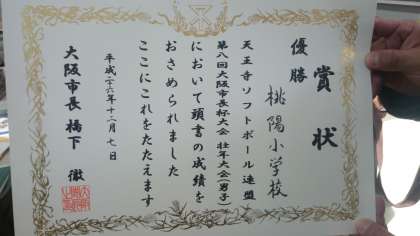 賞状
優勝
桃陽小学校
天王寺ソフトボール連盟
第八回大阪市長杯大会 壮年大会(男子)
において頭書の成績を
おさめられました
ここにこれをたたえます
平成二六年十二月七日
大阪市長 橋下 徹